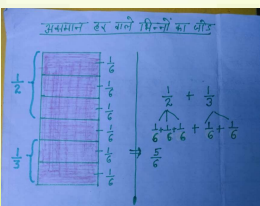 असमान हर वाले भिन्नों का जोड़
1/2
1/3
1/6
1/6
1/6
1/6
1/6
1/6
1/2 + 1/3
1/6 + 1/6 + 1/6 + 1/6 + 1/6
⇒ 5/6